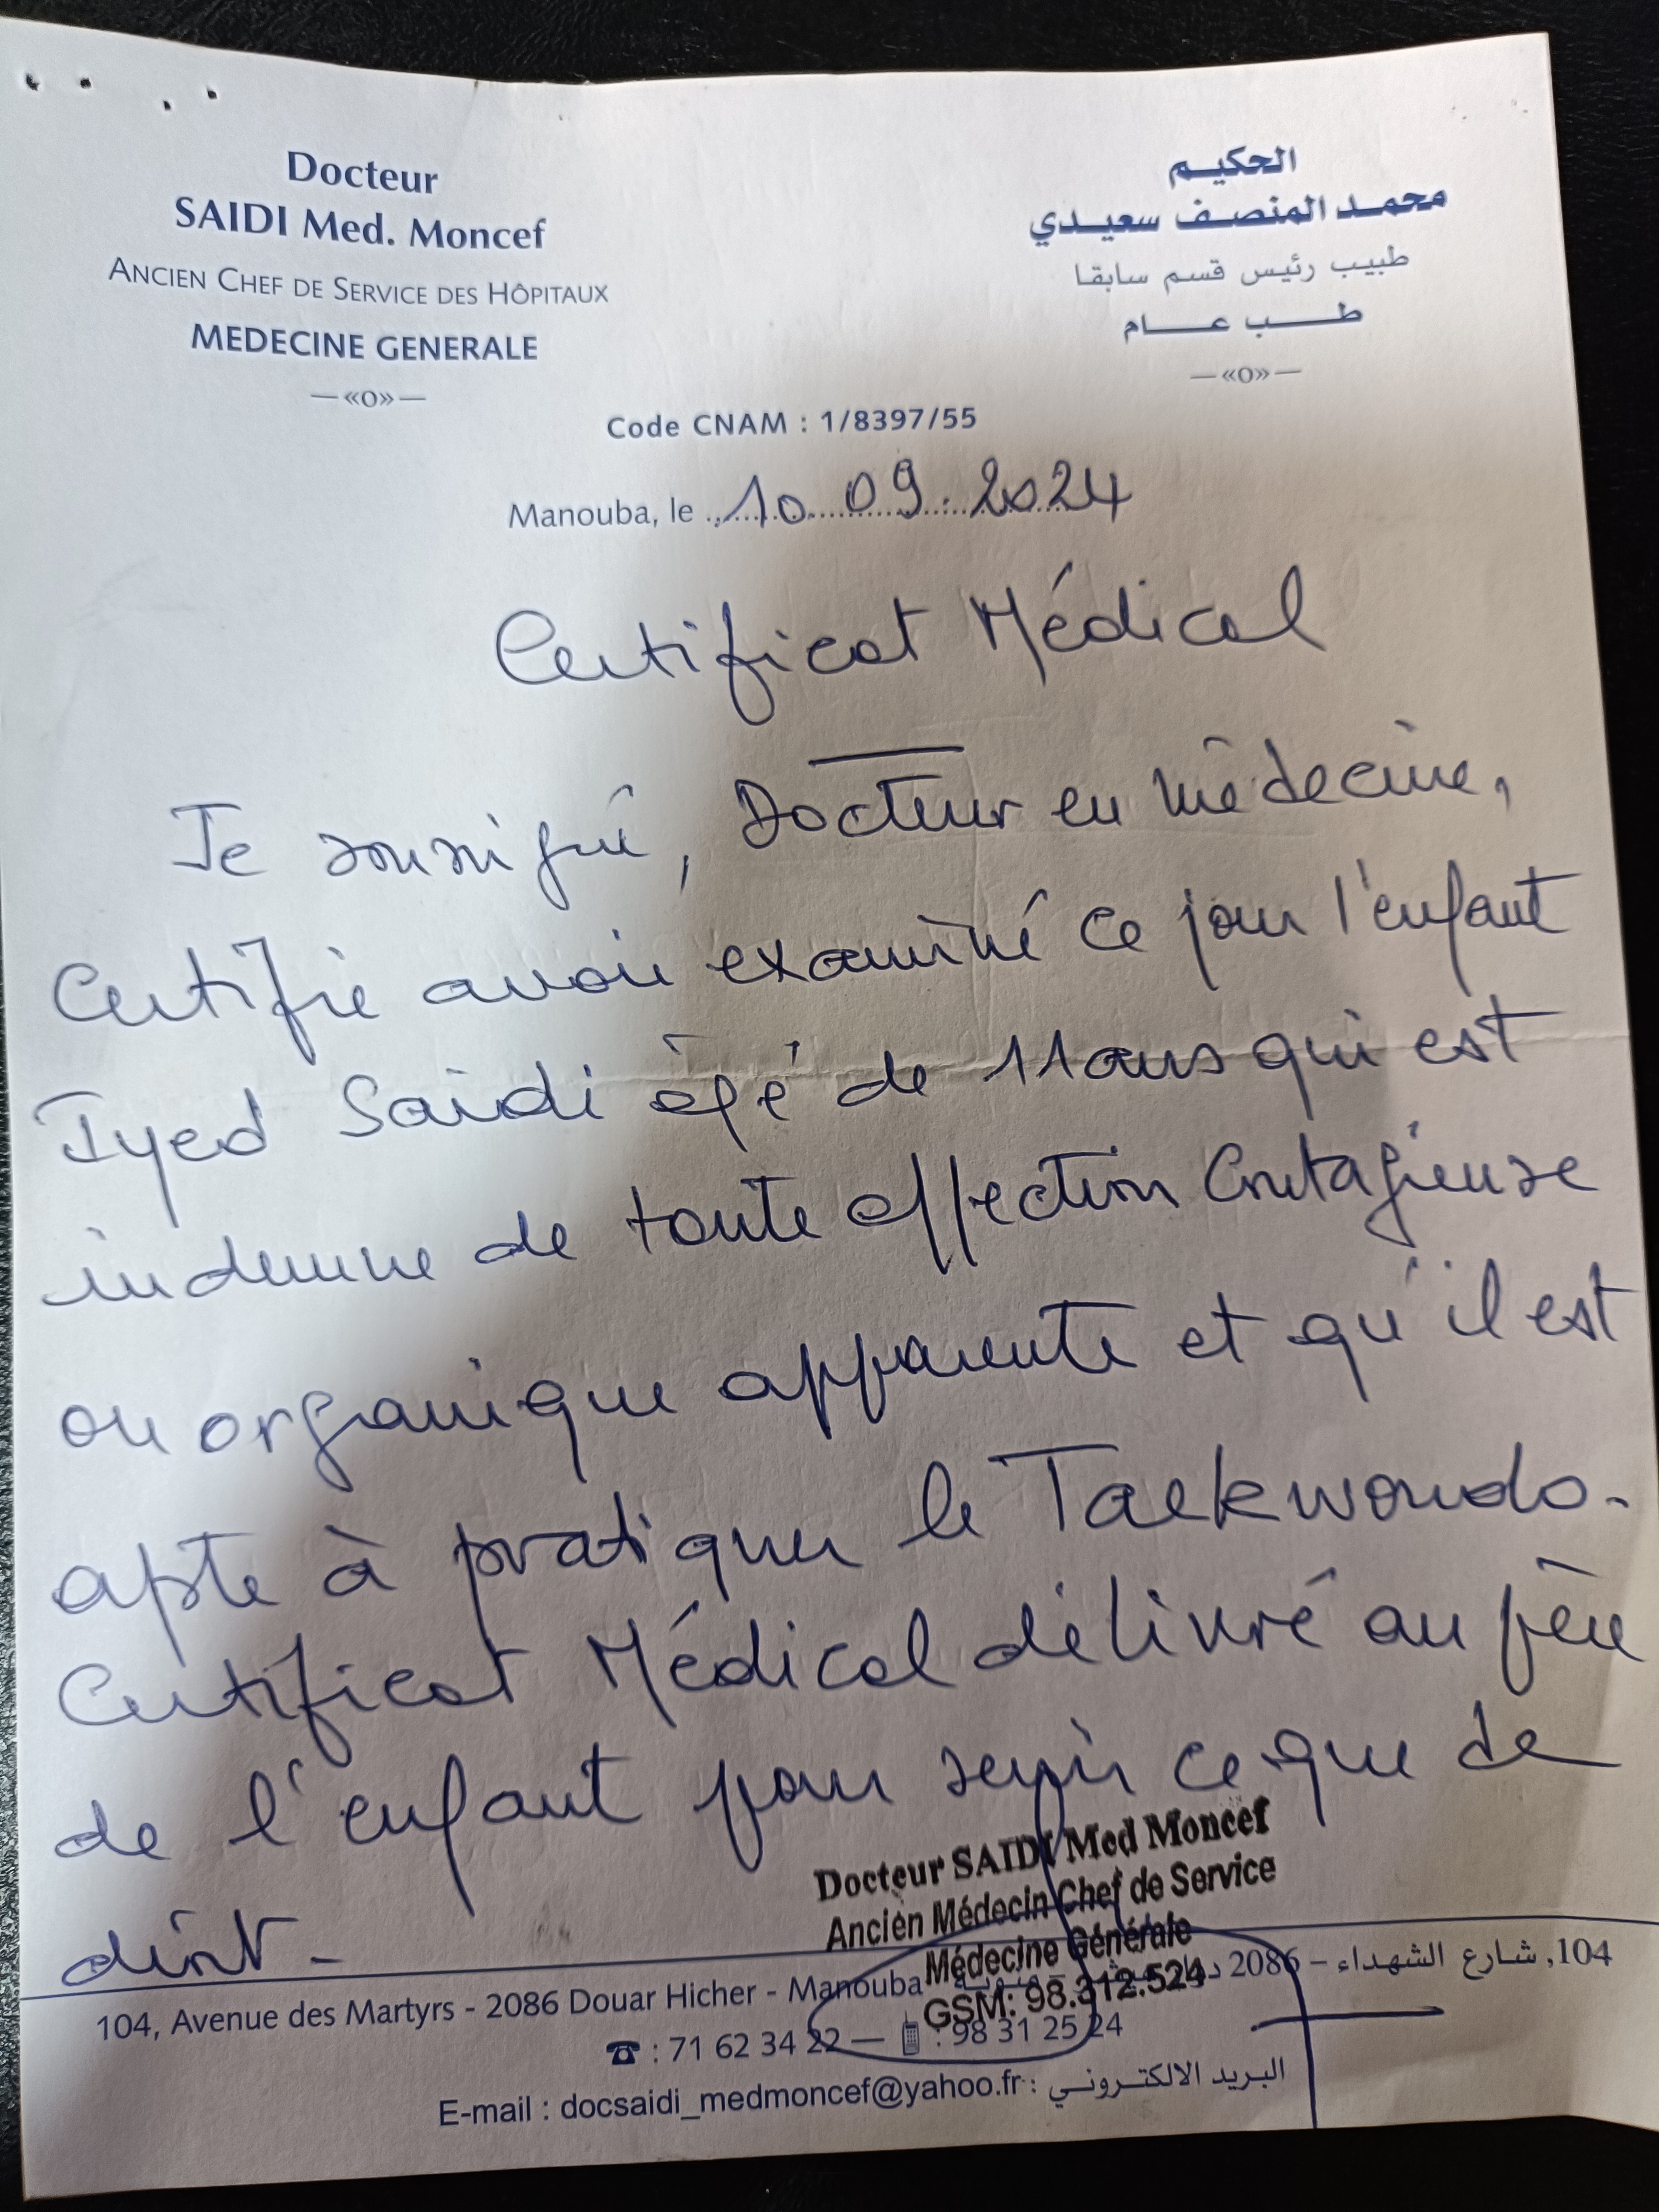 Docteur
SAIDI Med. Moncef
ANCIEN CHEF DE SERVICE DES HÔPITAUX
MEDECINE GENERALE
—«O»—
الحكيم
محمد المنصف سعيدي
طبيب رئيس قسم سابقا
طب عام
—«O»—
Code CNAM : 1/8397/55
Manouba, le 10 09 2024
Certificat Médical
Je soussigné, Docteur en médecine,
Certifie avoir examiné ce jour l'enfant
Iyed Saidi âgé de 11 ans qui est
indemne de toute affection contagieuse
ou organique apparente et qu'il est
apte à pratiquer le Taekwondo.
Certificat Médical délivré au père
de l'enfant pour servir ce que de
droit -
Docteur SAIDI Med Moncef
Ancien Médecin Chef de Service
Médecine Générale
GSM: 98.312.524
104, Avenue des Martyrs - 2086 Douar Hicher - Manouba
104, شارع الشهداء – 2086
☎ : 71 62 34 22 — 📱 : 98 31 25 24
E-mail : docsaidi_medmoncef@yahoo.fr : البريد الالكتروني